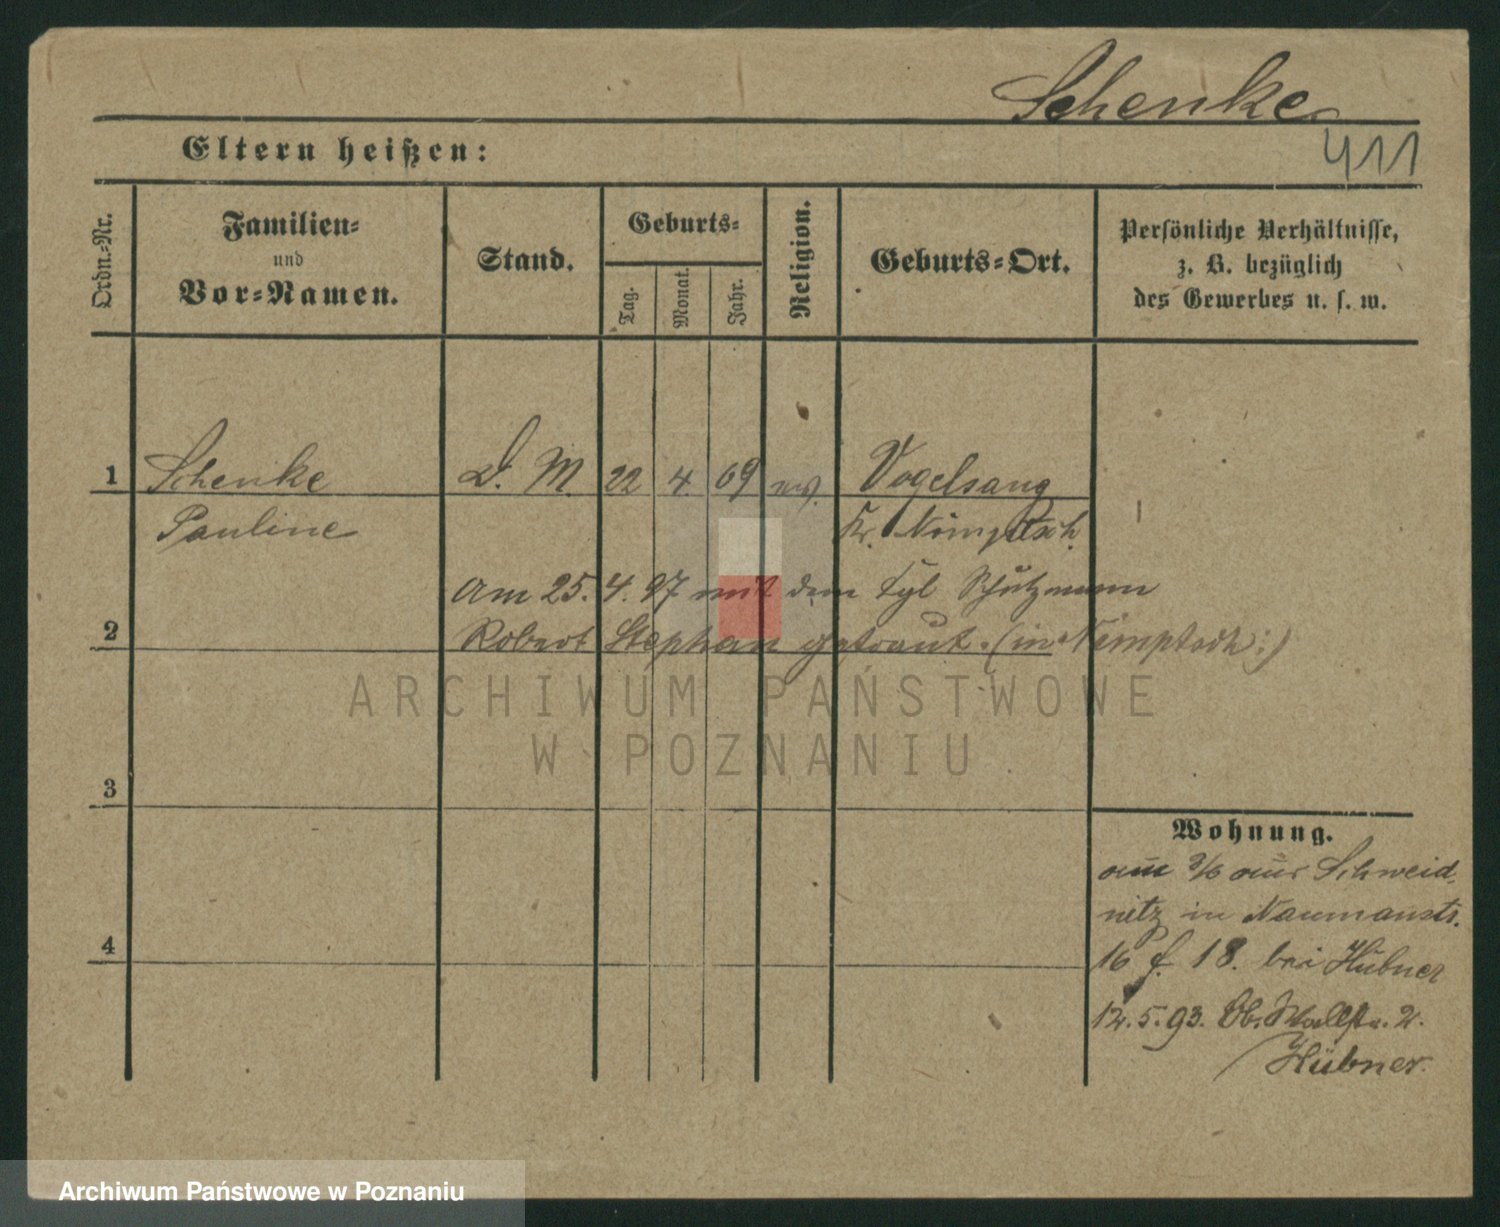 Schenke
411
Eltern heißen:
Ordn.-Nr.
Familien-
und
Vor-Namen.
Stand.
Geburts-
Tag.
Monat.
Jahr.
Religion.
Geburts-Ort.
Persönliche Verhältnisse,
z. B. bezüglich
des Gewerbes u. s. w.
1 Schenke D. M. 22 4 69 ev. Vogelsang
Pauline Kr. Nimptsch.
Am 25. 4. 97 mit dem Kgl Schutzmann
2 Robert Stephan getraut. (in Nimptsch:)
ARCHIWUM PAŃSTWOWE
W POZNANIU
3
Wohnung.
am 3/6 aus Schweid-
nitz in Naumanstr.
4
16 f. 18. bei Hübner
12.5.93. Ob. Wallstr. 2.
Hübner.
Archiwum Państwowe w Poznaniu